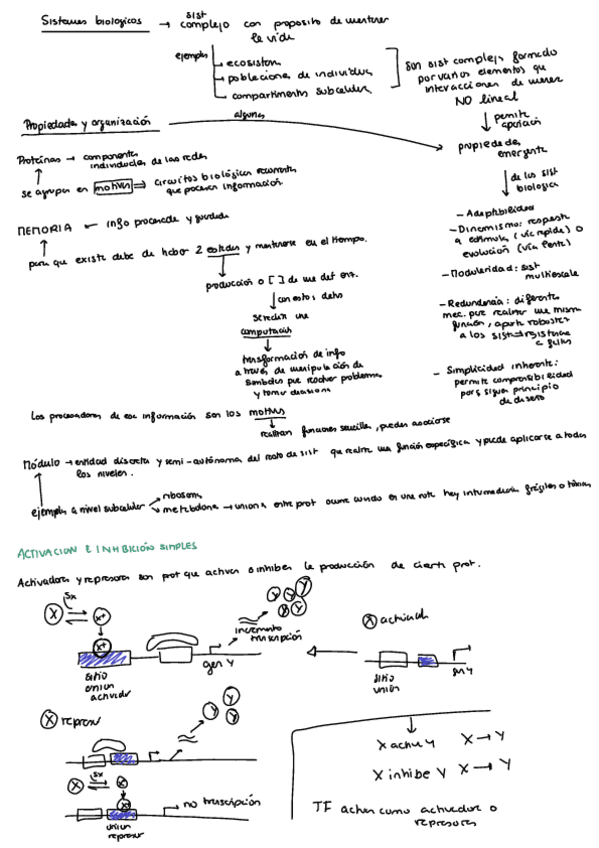 Sistemas biologicos → sist complejo con proposito de mantener la vida
ejemplos
ecosistemas
poblaciones de individuos
compartimentos subcelulares
son sist complejos formados
por varios elementos que
interaccionan de manera
NO lineal
permite
aparición
propiedades
emergentes
de los sist
biologicos
Propiedades y organización
algunas
Proteinas → componentes
individuales de las redes
se agrupan en motivos ⇒ circuitos biológicos recurrentes
que procesan información.
MEMORIA ← info procesada y guardada
para que exista debe de haber 2 estados y mantenerse en el tiempo.
producción o [ ] de una det ent.
con estos datos
se realiza una
computación
transformación de info
a través de manipulación de
simbolos para resolver problemas
y tomar decisiones
- Adaptabilidad
- Dinamismo: respuesta
a estimulos (vía rapida) o
evolución (vía lenta)
- Modularidad: sist
multiescala
- Redundancia: diferentes
mec. para realizar una misma
función, aporta robustez
a los sist → resistencia
a fallos
- Simplicidad inherente:
permite comprensibilidad
para seguir principio
de diseño
Los procesadores de esa información son los motivos
realizan funciones sencillas, pueden asociarse
Módulo → entidad discreta y semi-autónoma del resto de sist que realiza una función especifica y puede aplicarse a todos
los niveles.
ejemplos a nivel subcelular
ribosoma
metabolona → uniones entre prot ocurre cuando en una ruta hay intermediarios frágiles o tóxicos
ACTIVACION E INHIBICIÓN SIMPLES
Activadores y represores son prot que activan o inhiben la producción de ciertas prot.
X Sx X*
X*
Y Y Y Y Y
incremento
transcripción
gen Y
sitio
union
activador
X activador
sitio
union
gen Y
X represor
Y Y Y
X Sx X
X*
no transcripción
union
represor
X activa Y X → Y
X inhibe Y X ⊣ Y
TF actuan como activadores o
represores